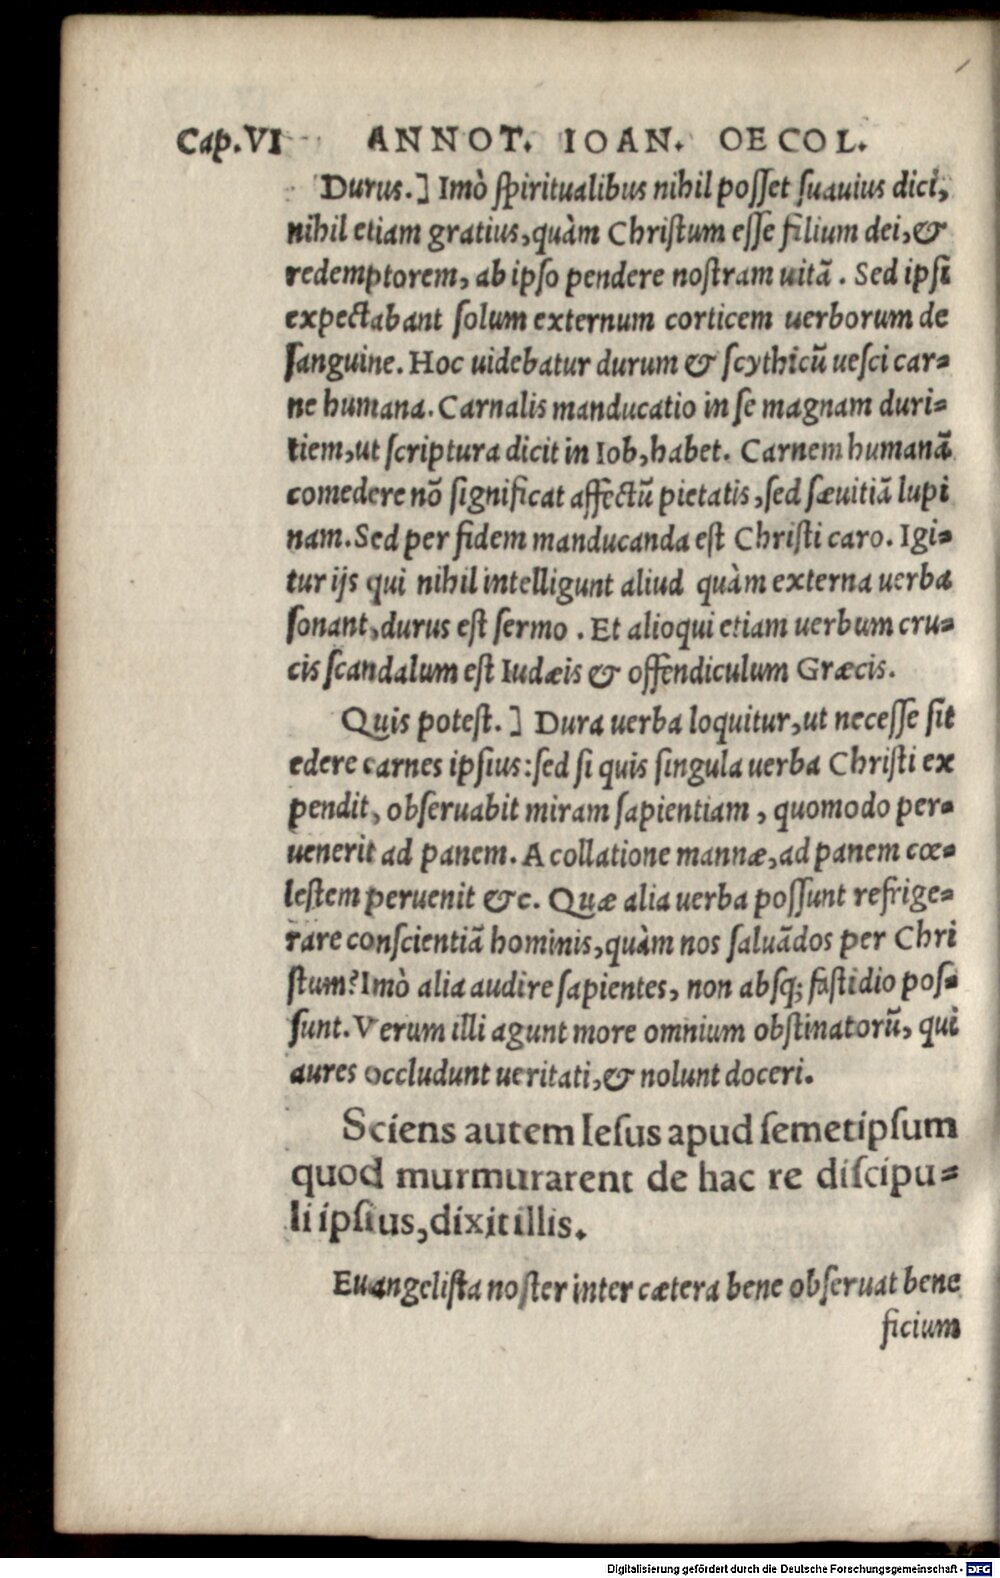 Cap.VI ANNOT. IOAN. OECOL.
Durus.] Imò ſpiritualibus nihil poſſet ſuauius dici,
nihil etiam gratius, quàm Chriſtum eſſe filium dei, &
redemptorem, ab ipſo pendere noſtram uitã. Sed ipſi
expectabant ſolum externum corticem uerborum de
ſanguine. Hoc uidebatur durum & ſcythicũ ueſci car⸗
ne humana. Carnalis manducatio in ſe magnam duri⸗
tiem, ut ſcriptura dicit in Iob, habet. Carnem humanã
comedere nõ ſignificat affectũ pietatis, ſed ſæuitiã lupi
nam. Sed per fidem manducanda eſt Chriſti caro. Igi⸗
tur ijs qui nihil intelligunt aliud quàm externa uerba
ſonant, durus eſt ſermo. Et alioqui etiam uerbum cru⸗
cis ſcandalum eſt Iudæis & offendiculum Græcis.
Quis poteſt.] Dura uerba loquitur, ut neceſſe ſit
edere carnes ipſius: ſed ſi quis ſingula uerba Chriſti ex
pendit, obſeruabit miram ſapientiam, quomodo per⸗
uenerit ad panem. A collatione mannæ, ad panem cœ⸗
leſtem peruenit &c. Quæ alia uerba poſſunt refrige⸗
rare conſcientiã hominis, quàm nos ſaluãdos per Chri
ſtum? Imò alia audire ſapientes, non abſq; faſtidio poſ⸗
ſunt. Verum illi agunt more omnium obſtinatorũ, qui
aures occludunt ueritati, & nolunt doceri.
Sciens autem Ieſus apud ſemetipſum
quod murmurarent de hac re diſcipu⸗
li ipſius, dixit illis.
Euangeliſta noſter inter cætera bene obſeruat bene
ficium
Digitalisierung gefördert durch die Deutsche Forschungsgemeinschaft - DFG